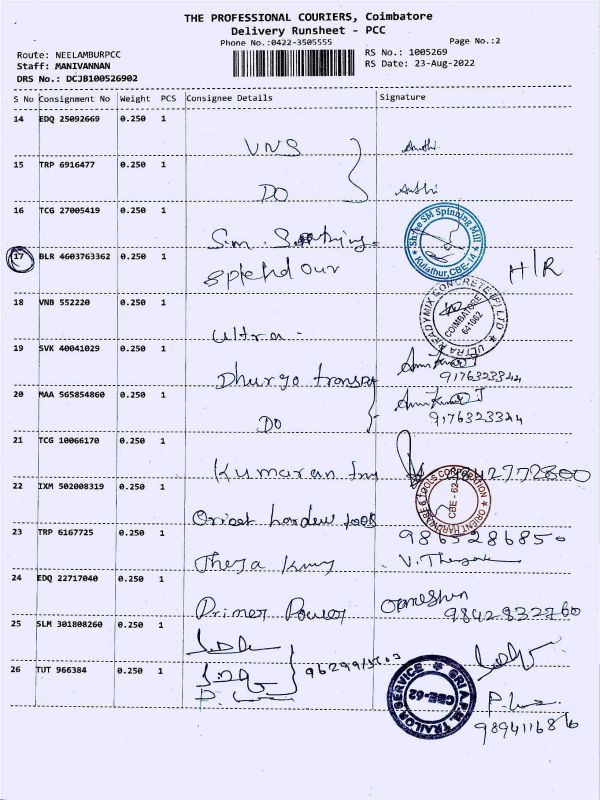 THE PROFESSIONAL COURIERS, Coimbatore
Delivery Runsheet - PCC
Phone No.:0422-3505555
Page No.:2
Route: NEELAMBURPCC
RS No.: 1005269
Staff: MANIVANNAN
RS Date: 23-Aug-2022
DRS No.: DCJB100526902
S No Consignment No Weight PCS Consignee Details Signature
14 EDQ 25092669 0.250 1
VNS
15 TRP 6916477 0.250 1
DO
16 TCG 27005419 0.250 1
S.m.
Shree SM Spinning Mill
Kulathur, CBE-14
17 BLR 4603763362 0.250 1
Splendour H/R
18 VNB 552220 0.250 1
Ultra -
ULTRA READYMIX CONCRETE (P) LTD
COIMBATORE
641062
19 SVK 40041029 0.250 1
Dhurga transpt
9176323344
20 MAA 565854860 0.250 1
DO
9176323344
21 TCG 10066170 0.250 1
Kumaran
22 IXM 502008319 0.250 1
Orient hardew tools
ORIENT HARDWARE & TOOLS CORPORATION
CBE - 62
23 TRP 6167725 0.250 1
24 EDQ 22717040 0.250 1
Primer Power
9842832760
25 SLM 301808260 0.250 1
26 TUT 966384 0.250 1
TRAILOR SERVICE
CBE-62